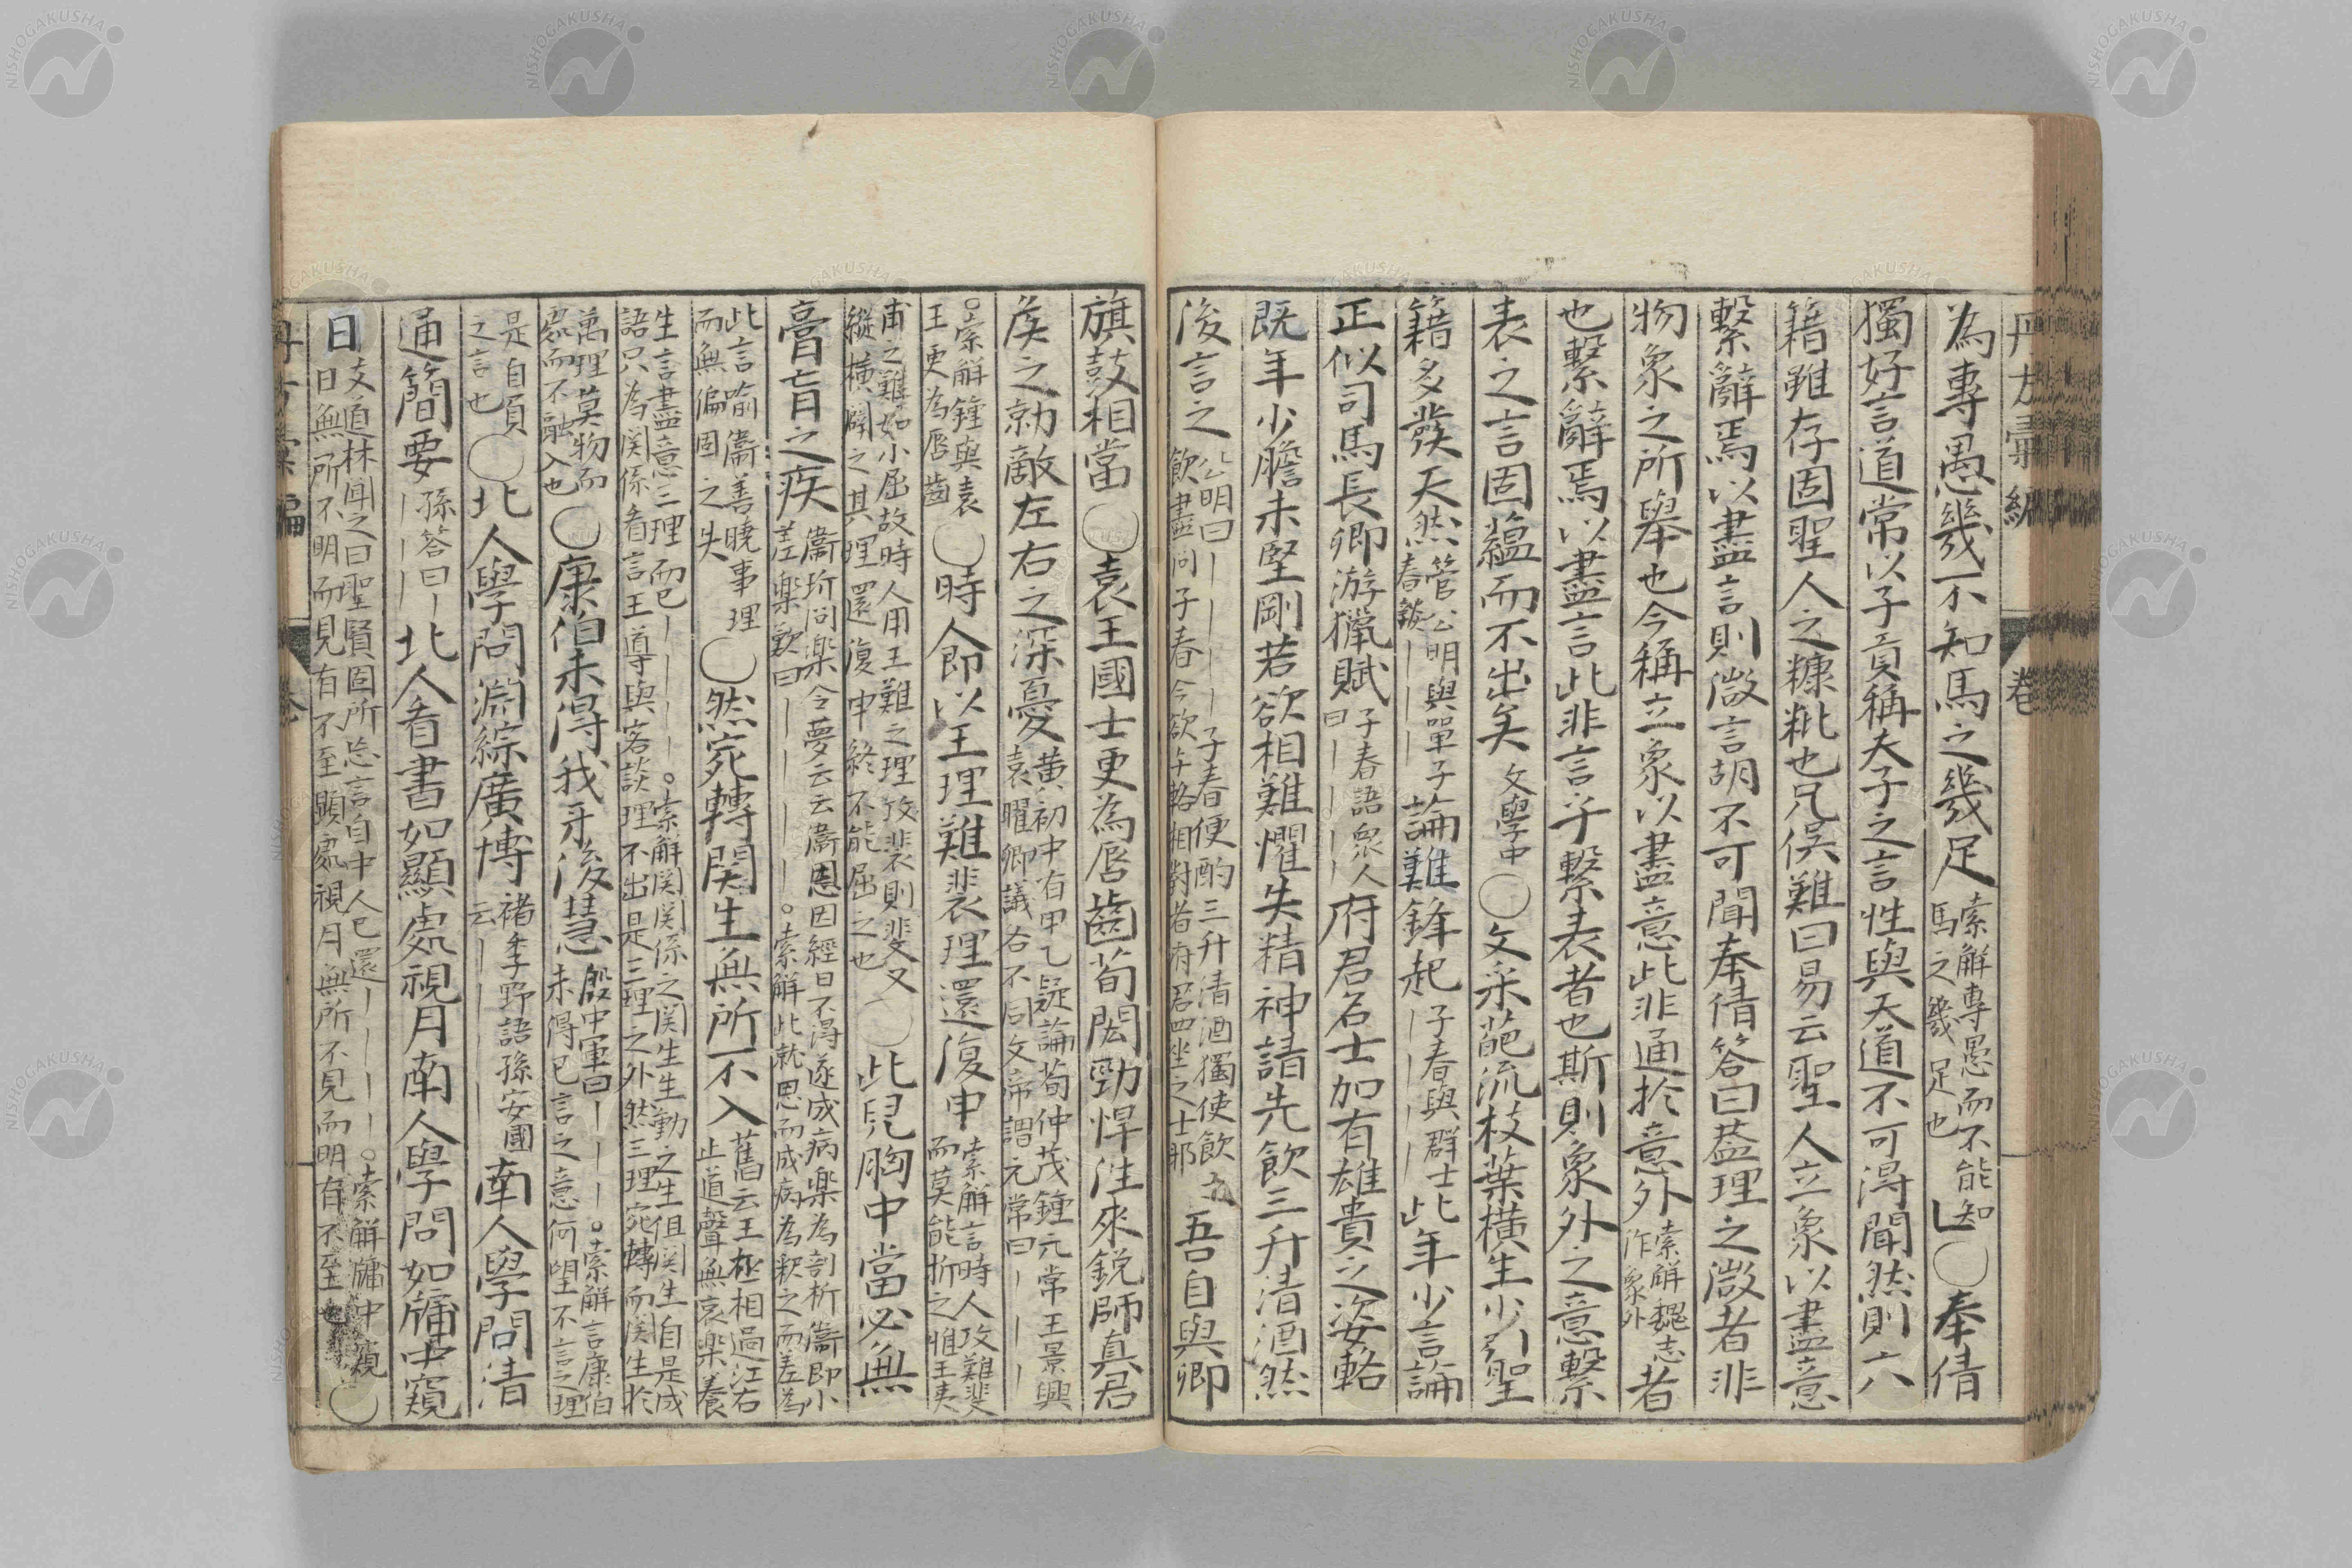 丹方彙編
卷
為專愚幾不知馬之幾足索解專愚而不能知馬之幾足也○奉倩
獨好言道常以子貢稱夫子之言性與天道不可得聞然則六
籍雖存固聖人之糠粃也兄俁難曰易云聖人立象以盡意
繫辭焉以盡言則微言胡不可聞奉倩答曰葢理之微者非
物象之所舉也今稱立象以盡意此非通於意外索解魏志作象外者
也繫辭焉以盡言此非言乎繫表者也斯則象外之意繫
表之言固蘊而不出矣文學中○文采葩流枝葉橫生少引聖
籍多發天然管公明與單子春談一一一論難鋒起子春與群士一一一一此年少言論
正似司馬長卿游獵賦子春語衆人曰一一一一府君名士加有雄貴之姿輅
既年少膽未堅剛若欲相難懼失精神請先飲三升清酒然
後言之公明曰一一一一子春便酌三升清酒獨使飲飲盡問子春今欲与輅相對者府君四坐之士耶吾自與卿
旗鼓相當○袁王國士更為唇齒荀閎勁悍往來銳師真君
矦之勍敵左右之深憂黄初中有甲乙疑論荀仲茂鍾元常王景興袁曜卿議各不同文帝謂元常曰一一一
○索解鍾與袁王更為唇齒○時人卽以王理難裴理還復申索解言時人攻難斐而莫能折之惟王夷
甫之難如小屈故時人用王難之理攻裴則斐又縱橫闢之其理還復申終不能屈之也○此兒胸中當必無
膏肓之疾衞玠问樂令夢云云衞思因經日不得遂成病樂為剖析衞即小差樂歎曰一一一一一。索解此就思而成病為釈之而差為
此言喻衞善曉事理而無偏固之失○然宛轉関生無所不入舊云王丞相過江右止道聲無哀樂養
生言盡意三理而已一一一一。索解関関係之関生生動之生但関生自是成語只為関係看言王導與客談理不出是三理之外然三理宛轉而関生於
萬理莫物而處而不融入也○康伯未得我牙後慧殷中軍曰一一一一。索解言康伯未得已言之意何望不言之理
是自負之言也○北人學問淵綜廣博褚季野語孫安國云一一一一南人學問清
通簡要孫答曰一一一一北人看書如顯處視月南人學問如牖中窺
日支道林闻之曰聖賢固所忘言自中人已還一一一一。索解牖中窺日無所不明而見有不至顯處視月無所不見而明有不至也○
丹方彙編
卷